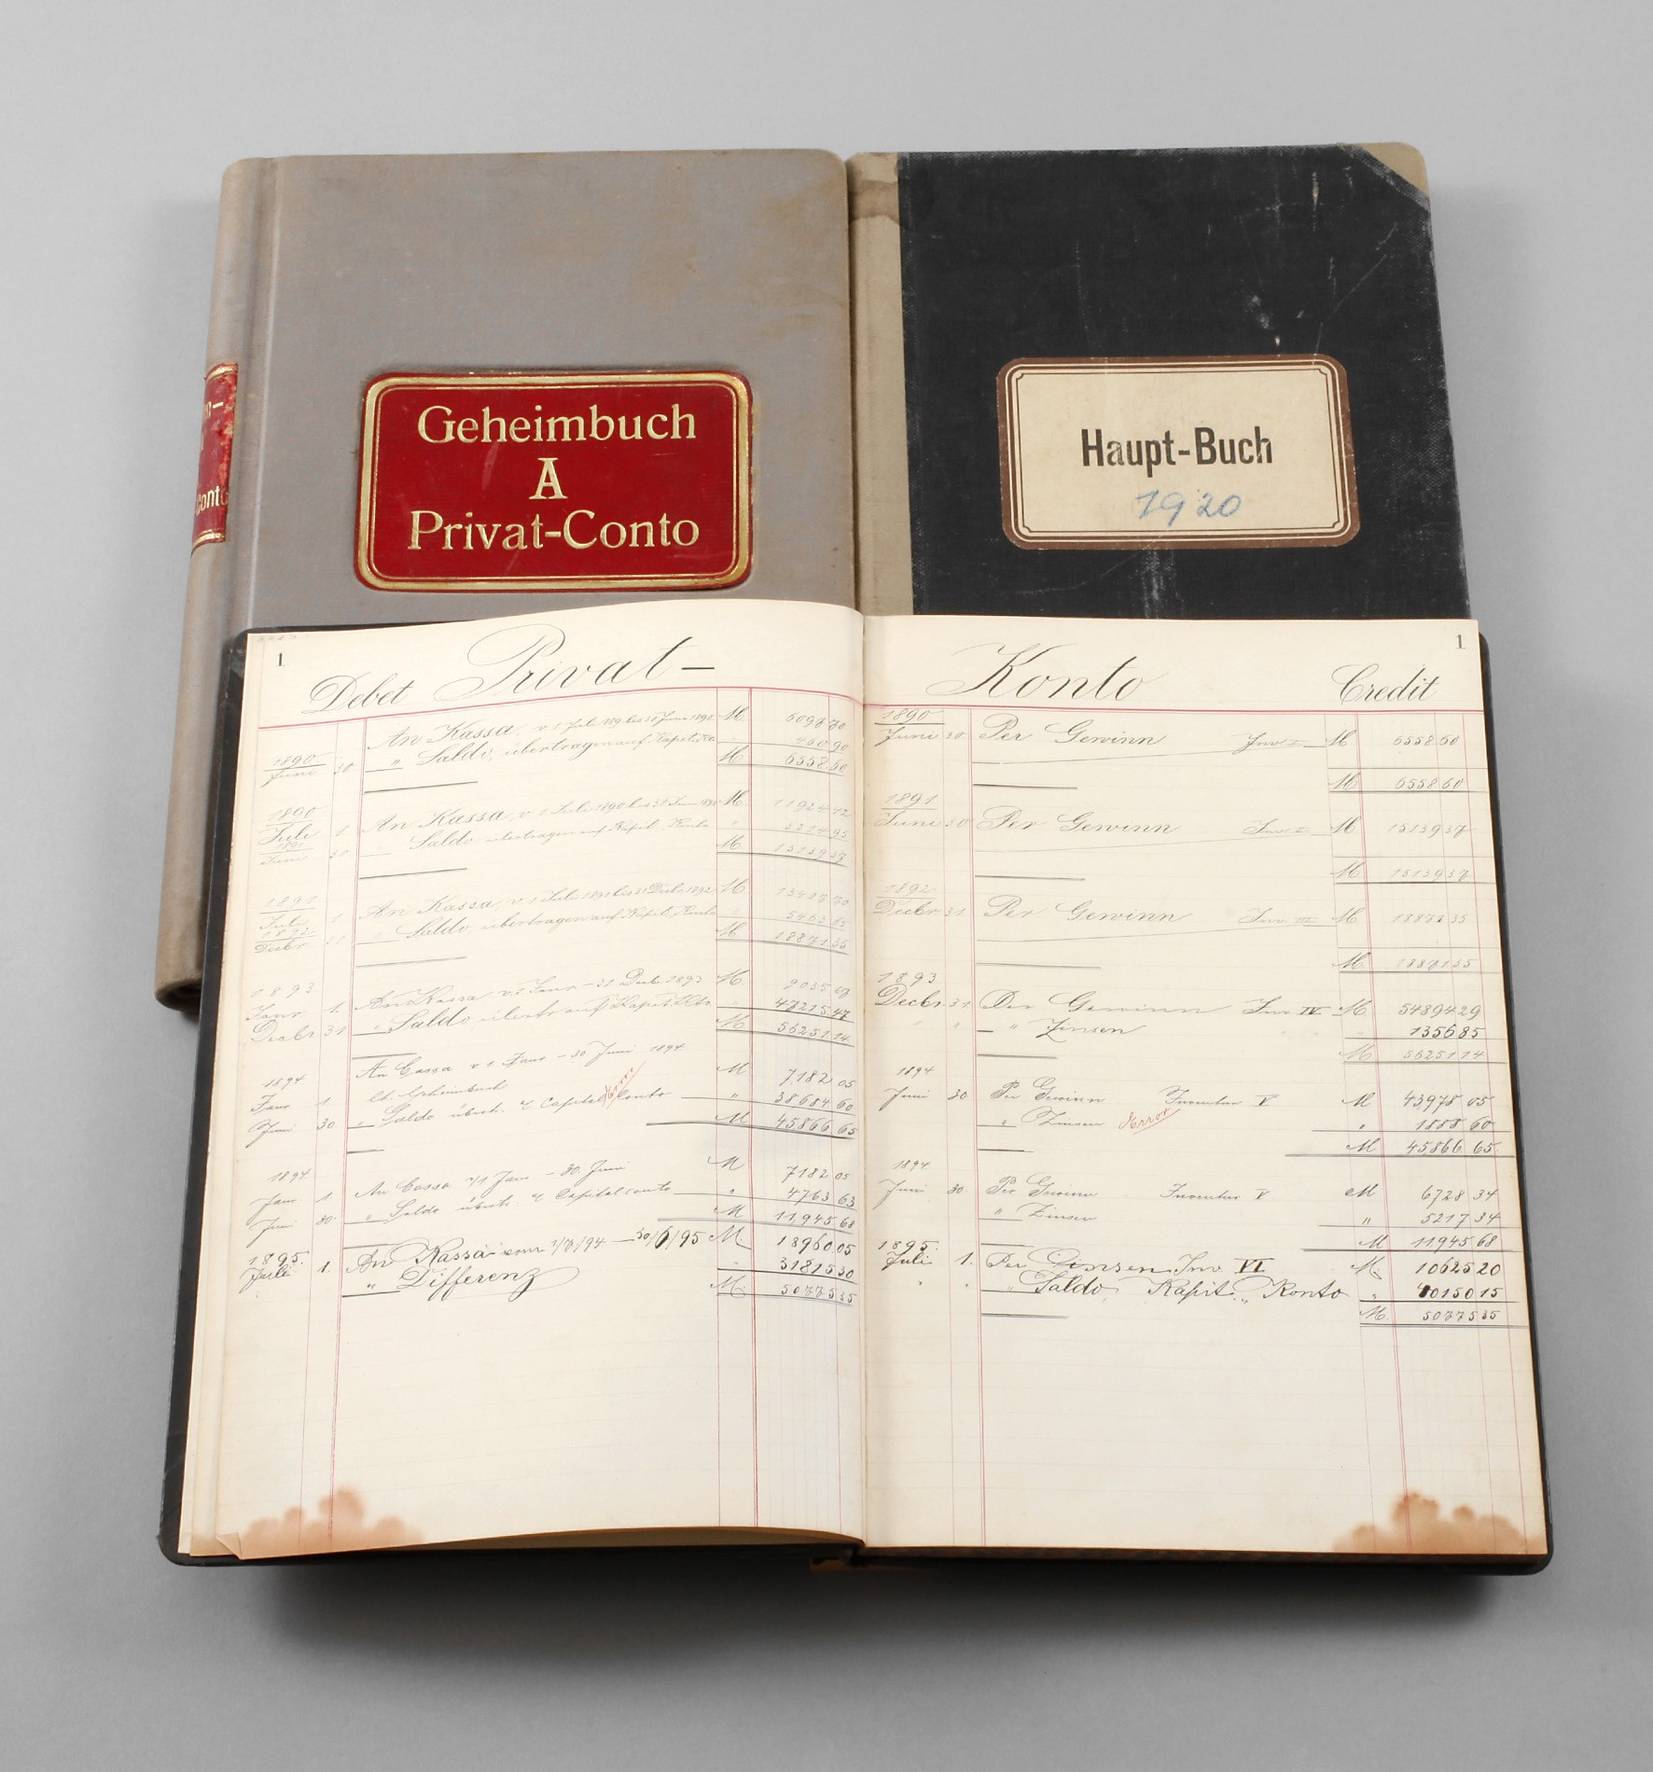 Geheimbuch
A
Privat-Conto
Haupt-Buch
1920
Conto
1 Debet Privat-
Konto Credit 1
An Kassa, v. 1 Juli 189 bis 30 Juni 1890 M
1890 Juni 30 " Saldo, übertragen auf Kapit.
M 6558 60
1890 Juli 1. An Kassa, v. 1 Juli 1890 bis 30 Juni M 11924 42
1891 Juni 30 Saldo übertragen auf Kapit. Konto " 3214 95
M 15139 37
1891 Juli 1. An Kassa, v. 1 Juli 1891 bis 31 Decbr 1892 M
1892 Decbr 31 Saldo übertragen auf Kapit. Konto 5463 65
M 18871 35
1893
Janr 1. An Kassa v. 1 Janr - 31 Decb 1893 M. 9035 67
Decbr 31 " Saldo übertr auf Kapit. Cto 47215 47
M 56251 14
1894 An Cassa v. 1 Janr - 30 Juni 1894
Janr 1. lt. Geheimbuch M 7182 05
Juni 30. " Saldo übertr. a/ Capital Conto " 38684 60
M 45866 65
1894
Janr 1. An Cassa v/1 Janr - 30. Juni M 7182 05
Juni 30. " Saldo übertr. a/ Capitalconto " 4763 63
M 11945 68
1895. Juli 1. An Kassa vom 1/7/94 - 30/6/95 M. 18960 05
" Differenz 31815 30
M. 50775 35
1890
Juni 30 Per Gewinn Inv. I M 6558 60
M 6558 60
1891
Juni 30 Per Gewinn Inv. II M 15139 37
M 15139 37
1892
Decbr 31 Per Gewinn Inv. III M 18871 35
M 18871 35
1893
Decbr 31 Per Gewinn Inv IV M 54894 29
" " " Zinsen 1356 85
M 56251 14
1894
Juni 30 Per Gewinn Inventur V M 43978 05
" Zinsen Error " 1888 60
M 45866 65
1894
Juni 30. Per Gewinn Inventur V M 6728 34
" Zinsen " 5217 34
M 11945 68
1895.
Juli 1. Per Zinsen Inv VI M. 10625 20
" " " Saldo, Kapit. Konto " 40150 15
M. 50775 35